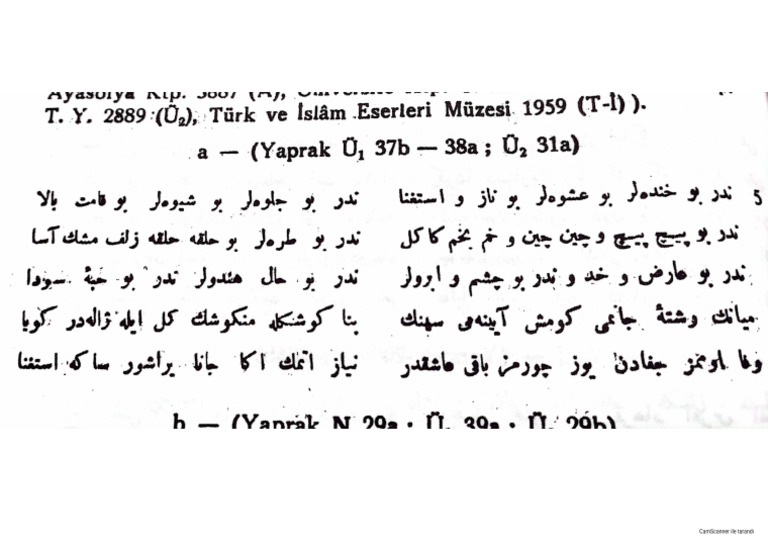 Ayasofya Ktp. 3887 (A), Üniversite
T. Y. 2889 (Ü₂), Türk ve İslâm Eserleri Müzesi 1959 (T-İ) ).
a — (Yaprak Ü₁ 37b — 38a ; Ü₂ 31a)
5 ندر بو خندەلر بو عشوەلر بو ناز و استغنا ندر بو جلوەلر بو شیوەلر بو قامت بالا
ندر بو پیچ پیچ و چین چین و خم بخم کاکل ندر بو طرەلر بو حلقه حلقه زلف مشك آسا
ندر بو عارض و خد و ندر بو چشم و ابرولر ندر بو خال هندولر ندر بو حبهٔ سودا
میانك رشتهٔ جانمی کومش آیینەمی سینەنك بنا کوشکله منکوشك کل ایله ژالەدر کویا
وفا اومنز جفادن یوز چورمز باقی عاشقدر نیاز اتمك اکا جانا یراشور ساکه استغنا
b — (Yaprak N 29a ; Ü. 39a ; Ü. 29b)
CamScanner ile tarandı